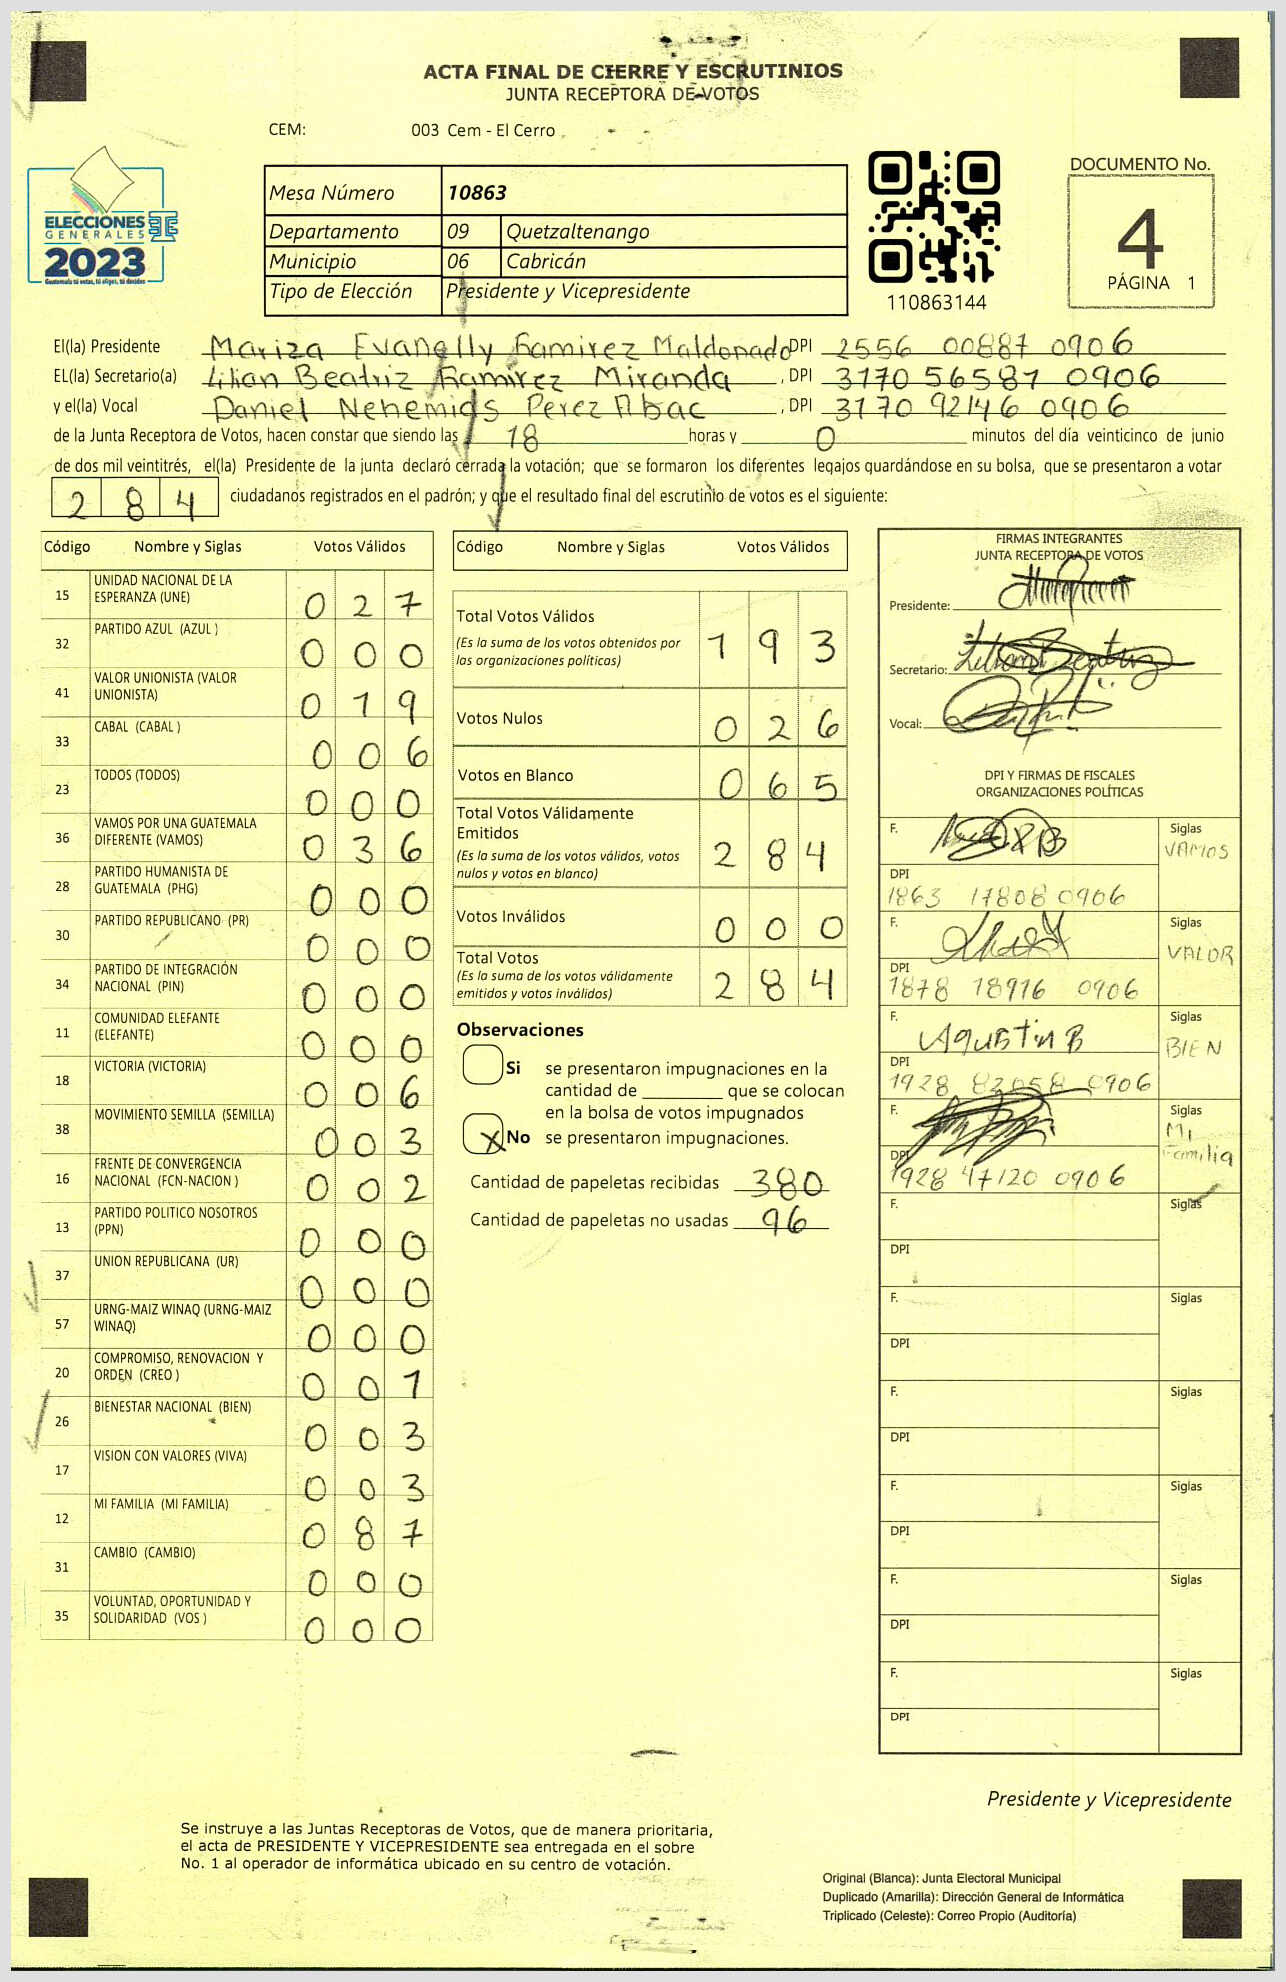 ACTA FINAL DE CIERRE Y ESCRUTINIOS
JUNTA RECEPTORA DE VOTOS
CEM: 003 Cem - El Cerro
ELECCIONES
GENERALES
2023
Guatemala tú votas, tú eliges, tú decides
Mesa Número 10863
Departamento 09 Quetzaltenango
Municipio 06 Cabricán
Tipo de Elección Presidente y Vicepresidente
110863144
DOCUMENTO No.
4
PÁGINA 1
El(la) Presidente Mariza Evanelly Ramirez Maldonado DPI 2556 00887 0906
EL(la) Secretario(a) Lilian Beatriz Ramirez Miranda , DPI 3170 56587 0906
y el(la) Vocal Daniel Nehemias Perez Abac , DPI 3170 92146 0906
de la Junta Receptora de Votos, hacen constar que siendo las 18 horas y 0 minutos del día veinticinco de junio
de dos mil veintitrés, el(la) Presidente de la junta declaró cerrada la votación; que se formaron los diferentes legajos guardándose en su bolsa, que se presentaron a votar
284 ciudadanos registrados en el padrón; y que el resultado final del escrutinio de votos es el siguiente:
Código Nombre y Siglas Votos Válidos
15 UNIDAD NACIONAL DE LA ESPERANZA (UNE) 027
32 PARTIDO AZUL (AZUL ) 000
41 VALOR UNIONISTA (VALOR UNIONISTA) 019
33 CABAL (CABAL ) 006
23 TODOS (TODOS) 000
36 VAMOS POR UNA GUATEMALA DIFERENTE (VAMOS) 036
28 PARTIDO HUMANISTA DE GUATEMALA (PHG) 000
30 PARTIDO REPUBLICANO (PR) 000
34 PARTIDO DE INTEGRACIÓN NACIONAL (PIN) 000
11 COMUNIDAD ELEFANTE (ELEFANTE) 000
18 VICTORIA (VICTORIA) 006
38 MOVIMIENTO SEMILLA (SEMILLA) 003
16 FRENTE DE CONVERGENCIA NACIONAL (FCN-NACION ) 002
13 PARTIDO POLITICO NOSOTROS (PPN) 000
37 UNION REPUBLICANA (UR) 000
57 URNG-MAIZ WINAQ (URNG-MAIZ WINAQ) 000
20 COMPROMISO, RENOVACION Y ORDEN (CREO ) 001
26 BIENESTAR NACIONAL (BIEN) 003
17 VISION CON VALORES (VIVA) 003
12 MI FAMILIA (MI FAMILIA) 087
31 CAMBIO (CAMBIO) 000
35 VOLUNTAD, OPORTUNIDAD Y SOLIDARIDAD (VOS ) 000
Código Nombre y Siglas Votos Válidos
Total Votos Válidos 193
(Es la suma de los votos obtenidos por
las organizaciones políticas)
Votos Nulos 026
Votos en Blanco 065
Total Votos Válidamente
Emitidos 284
(Es la suma de los votos válidos, votos
nulos y votos en blanco)
Votos Inválidos 000
Total Votos 284
(Es la suma de los votos válidamente
emitidos y votos inválidos)
Observaciones
Si se presentaron impugnaciones en la
cantidad de ________ que se colocan
en la bolsa de votos impugnados
X No se presentaron impugnaciones.
Cantidad de papeletas recibidas 380
Cantidad de papeletas no usadas 96
FIRMAS INTEGRANTES
JUNTA RECEPTORA DE VOTOS
Presidente:
Secretario: Lilian Beatriz
Vocal:
DPI Y FIRMAS DE FISCALES
ORGANIZACIONES POLÍTICAS
F. Siglas VAMOS
DPI 1863 17808 0906
F. Siglas VALOR
DPI 1878 18916 0906
F. Agustin B Siglas BIEN
DPI 1928 82058 0906
F. Siglas Mi Familia
DPI 1928 47120 0906
F. Siglas
DPI
F. Siglas
DPI
F. Siglas
DPI
F. Siglas
DPI
F. Siglas
DPI
F. Siglas
DPI
Presidente y Vicepresidente
Se instruye a las Juntas Receptoras de Votos, que de manera prioritaria,
el acta de PRESIDENTE Y VICEPRESIDENTE sea entregada en el sobre
No. 1 al operador de informática ubicado en su centro de votación.
Original (Blanca): Junta Electoral Municipal
Duplicado (Amarilla): Dirección General de Informática
Triplicado (Celeste): Correo Propio (Auditoría)